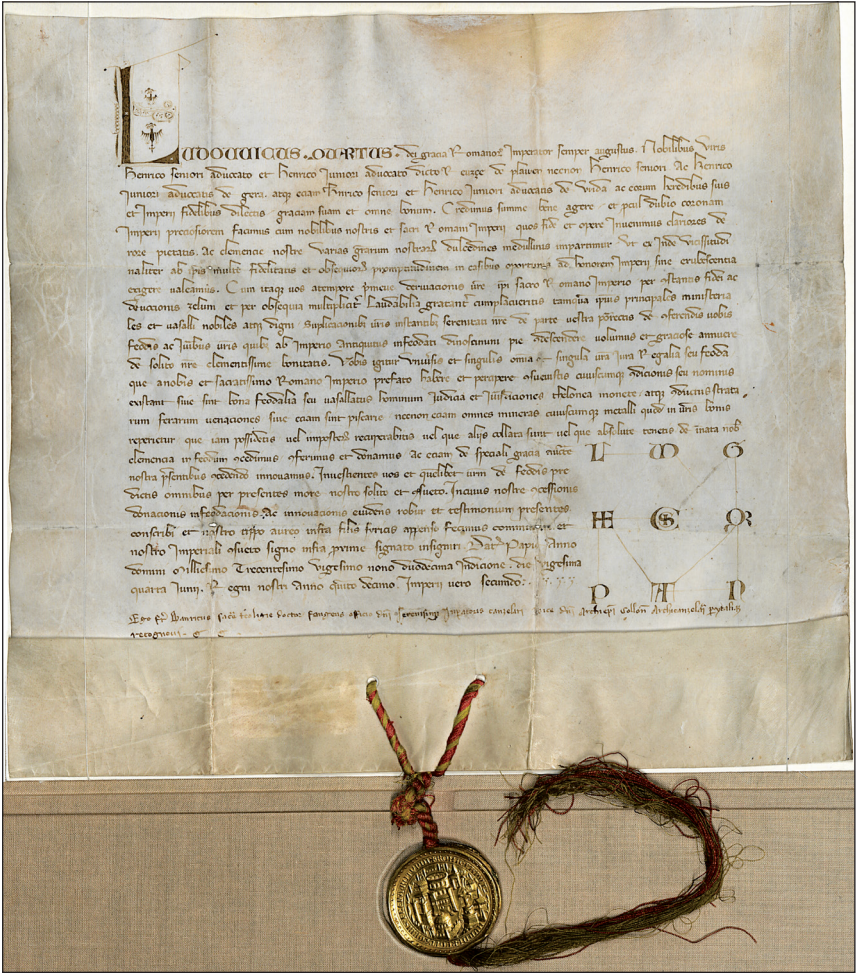 LUDOUUICUS · QUARTUS · dei gracia Romanoꝝ Imperator semper augustus. Nobilibus viris
Henrico seniori aduocato et Henrico Juniori aduocato dicto de plawen necnon Henrico seniori Ac Henrico
Juniori aduocatis de gera. atqꝫ eciam Henrico seniori et Henrico Juniori aduocatis de wida ac eorum heredibus suis
et Imperii fidelibus dilectis graciam suam et omne bonum. Credimus summe bene agere et dubio coronam
Imperii preciosiorem facimus cum nobilibus nostris et sacri Romani Imperii quos fide et opere Inuenimus clariores de
rore pietatis. Ac clemencie nostre varias graciarum nostraꝝ dulcedines medullinus impartimur vt ex Inde vicissitudi
naliter ab fidelitatis et obsequioꝝ promptitudinem in casibus oportunis ad honorem Imperii sine erubescentia
exigere valeamus. Cum itaqꝫ vos a tempore sacro Romano Imperio per fidei ac
deuocionis zelum et per obsequia multiplicit Laudabilia cumplacueritis tamqua principales ministeria
les et vasalli nobiles atqꝫ digni suplicacionibꝫ vris instantibꝫ serenitati nre de parte vestra porrectis de offerendis vobis
feodis ac Juribus vris quibꝫ ab Imperio Antiquitus infeodati dinoscimini pie condescendere volumus et graciose annuere
de solito nre clementissime bonitatis. Vobis igitur vniuersis et singulis omia et singula vra Jura et regalia seu feoda
que a nobis et sacratissimo Romano Imperio prefato habere et percipere consueuistis cuiuscumqꝫ condicionis seu nominis
existant siue sint bona feodalia seu vasallatus hominum Judicia et Jurisdictiones thelonea monete. atqꝫ conductus strata
rum ferarum venaciones siue eciam sint piscarie necnon eciam omnes mineras cuiuscumqꝫ metalli quod in vris bonis
reperietur que iam possidetis uel imposterum recuperabitis uel que alijs collata sunt uel que absolute tenetis de innata nobis
clemencia in feodum concedimus conferimus et donamus Ac eciam de speciali gracia
nostra presentibus concedendo innouamus. Inuestientes vos et quemlibet vrm de feodis pre
dictis omnibus per presentes more nostro solito et consueto. In cuius nostre concessionis
donacionis infeodacionis Ac innouacionis euidens robur et testimonium presentes
conscribi et nostro typo aureo infra filis sericis appenso fecimus communiri et
nostro Imperiali consueto signo infra proxime signato insigniri. Dat Papie Anno
domini Millesimo Trecentesimo vigesimo nono duodecima Indicione. die vigesima
quarta Junij. Regni nostri Anno Quinto decimo. Imperii vero secundo.
L W G
HE R
P A N
Ego doctor officium domini serenissimi Imperatoris vice dni Archiepi Collon Archicancelarii per ytaliam
recognoui